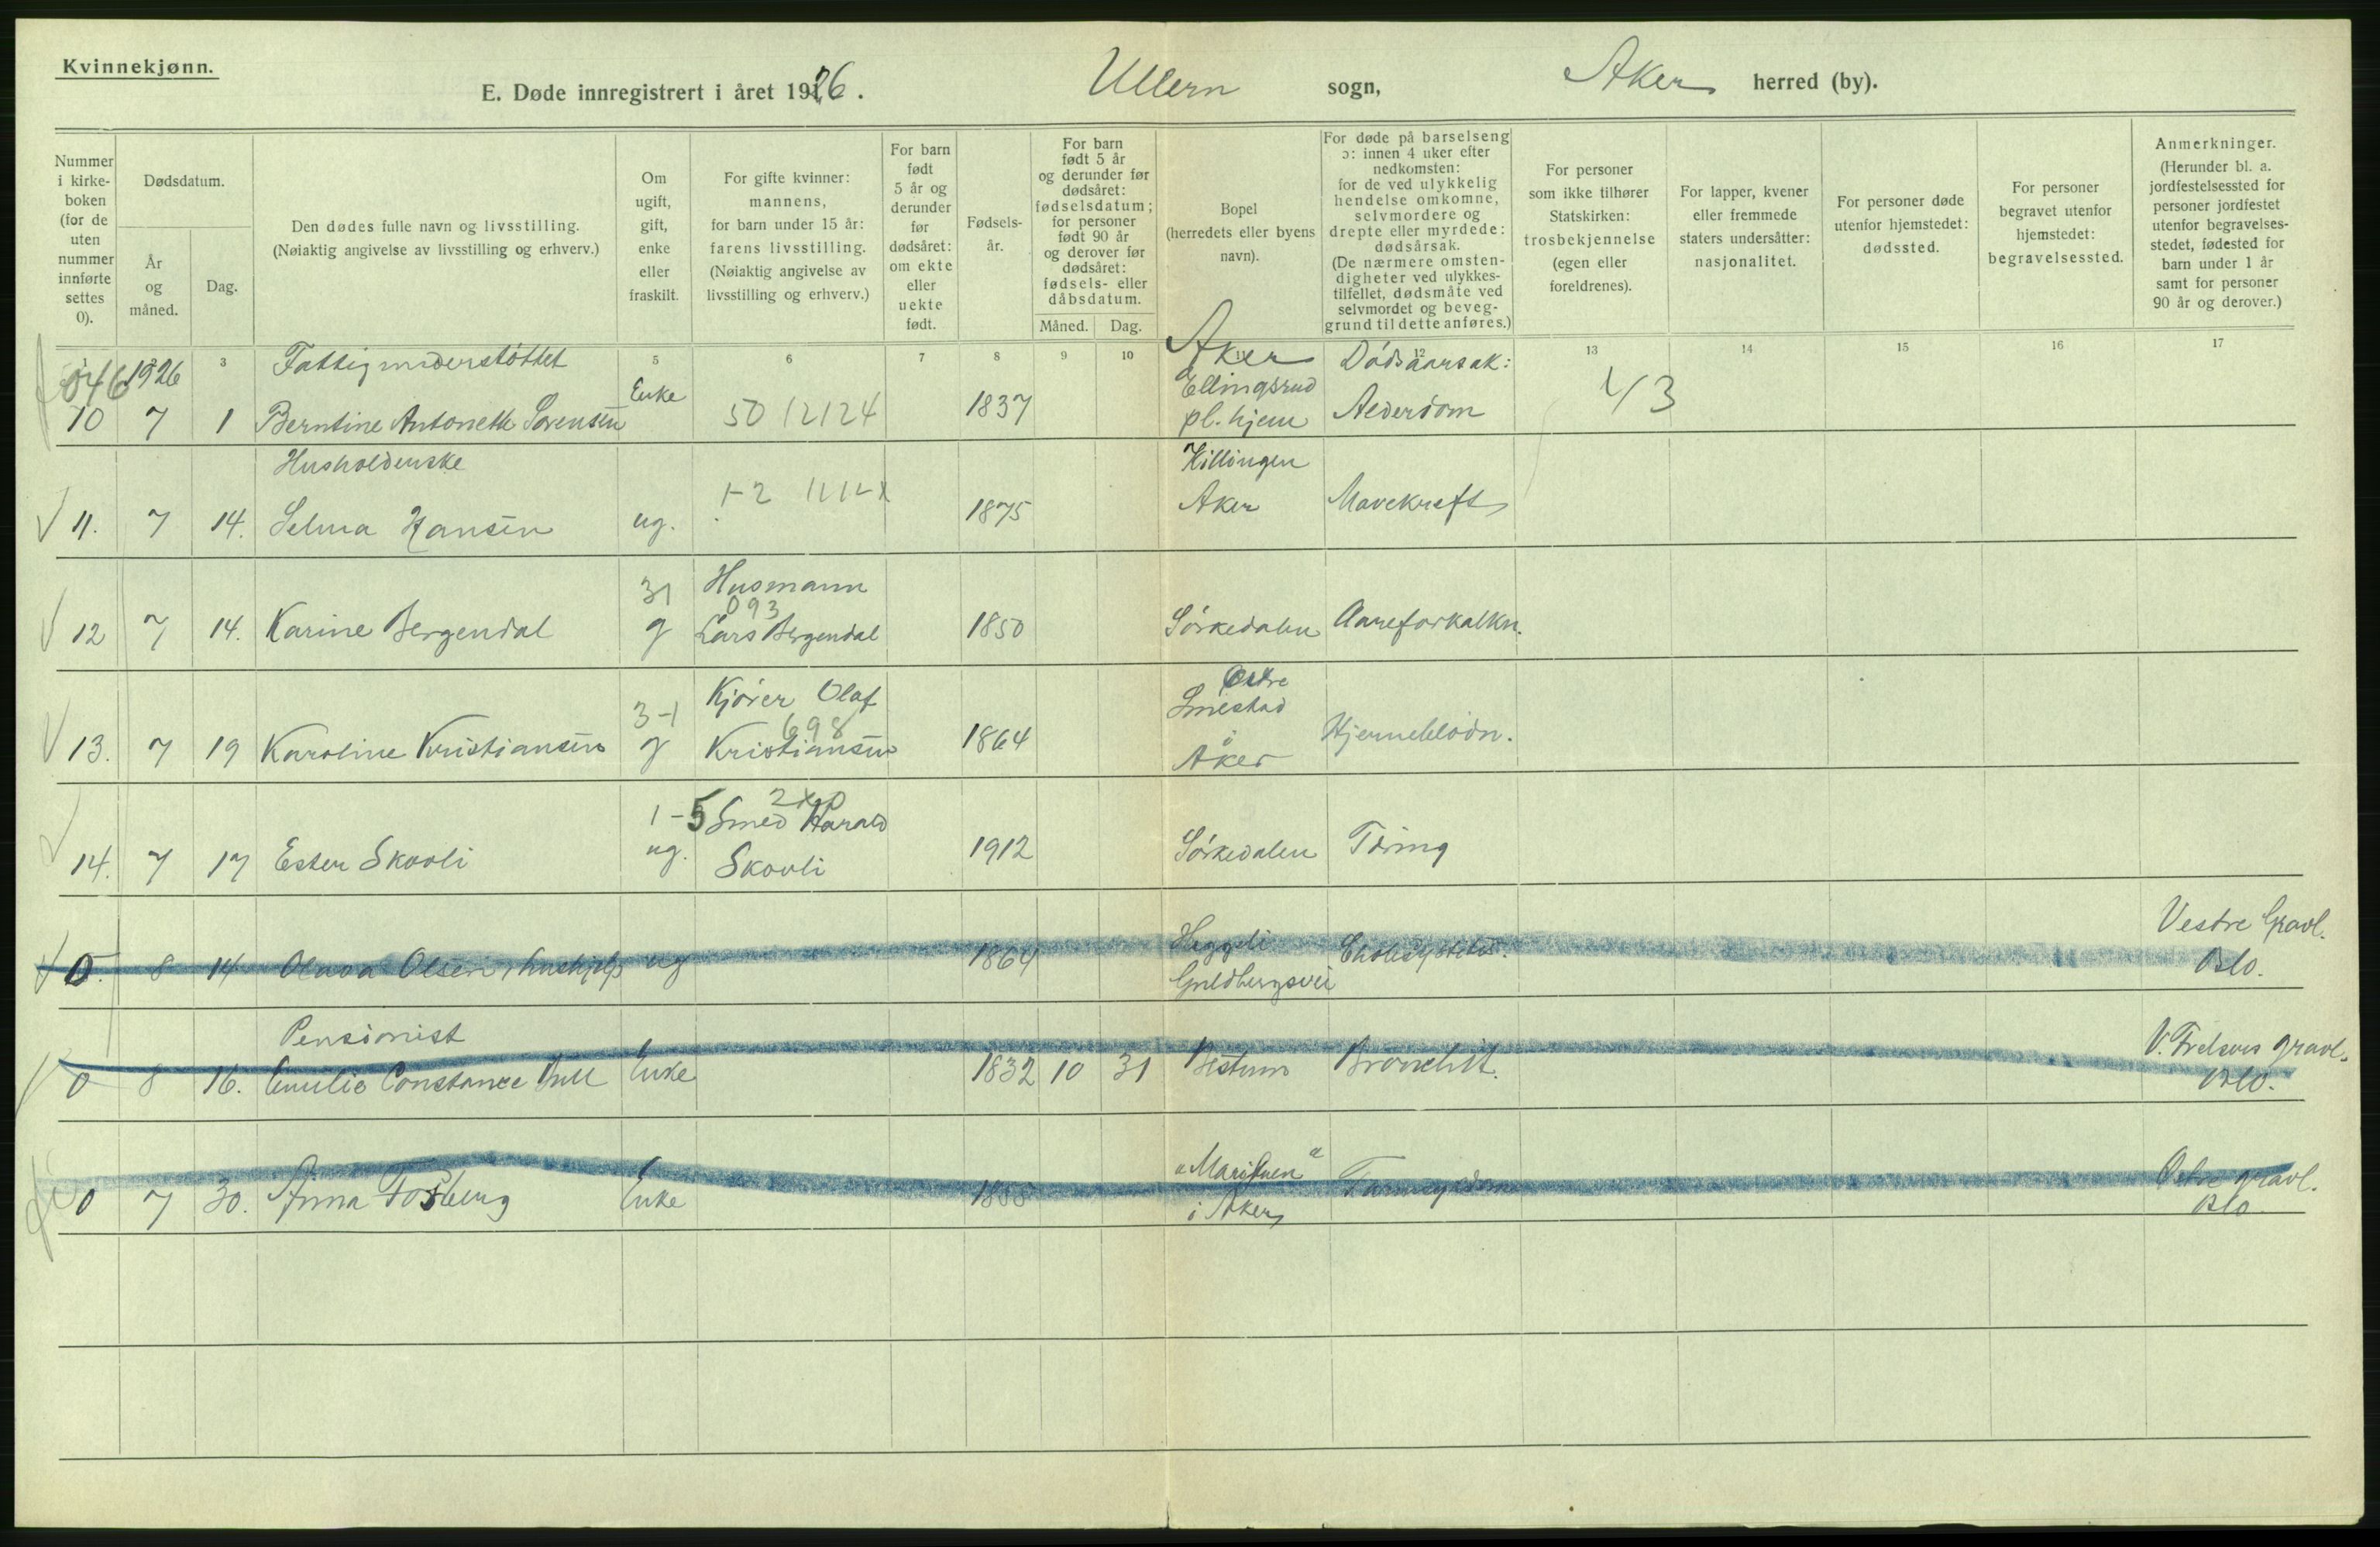 Kvinnekjønn.
E. Døde innregistrert i året 1926. Ullern sogn, Aker herred (by).
Nummer i kirke-boken (for de uten nummer innførte settes 0).
Dødsdatum.
År og måned.
Dag.
Den dødes fulle navn og livsstilling.
(Nøiaktig angivelse av livsstilling og erhverv.)
Om ugift, gift, enke eller fraskilt.
For gifte kvinner: mannens, for barn under 15 år: farens livsstilling.
(Nøiaktig angivelse av livsstilling og erhverv.)
For barn født 5 år og derunder før dødsåret: om ekte eller uekte født.
Fødsels-år.
For barn født 5 år og derunder før dødsåret: fødselsdatum; for personer født 90 år og derover før dødsåret: fødsels- eller dåbsdatum.
Måned. Dag.
Bopel (herredets eller byens navn).
For døde på barselseng ɔ: innen 4 uker efter nedkomsten: for de ved ulykkelig hendelse omkomne, selvmordere og drepte eller myrdede: dødsårsak.
(De nærmere omsten-digheter ved ulykkes-tilfellet, dødsmåte ved selvmordet og beveg-grund til dette anføres.)
For personer som ikke tilhører Statskirken: trosbekjennelse (egen eller foreldrenes).
For lapper, kvener eller fremmede staters undersåtter: nasjonalitet.
For personer døde utenfor hjemstedet: dødssted.
For personer begravet utenfor hjemstedet: begravelsessted.
Anmerkninger.
(Herunder bl. a. jordfestelsessted for personer jordfestet utenfor begravelses-stedet, fødested for barn under 1 år samt for personer 90 år og derover.)
3 5 6 7 8 9 10 11 12 13 14 15 16 17
046 1926 Fattigunderstøttet Aker Dødsaarsak:
Enke Ellingsrud 43
10 7 1 Berntine Antonette Sørensen 50 12124 1837 pl. hjem Alderdom
Husholderske Killingen
11. 7 14. Selma Hansen ug. 1875 Aker Mavekreft
31 Husmann
093
12 7 14. Karine Bergendal g Lars Bergendal 1850 Sørkedalen Aareforkalkn.
Østre
3-1 Kjører Olaf Smestad
698
13. 7 19 Karoline Kristiansen g Kristiansen 1864 Aker Hjerneblødn.
1-5 Smed Harald
14. 7 17 Ester Skovli ug. Skovli 1912 Sørkedalen Tæring
Heggeli Vestre Gravl.
0. 8 14 Olava Olsen, hushjelp ug 1864 Guldbergsvei Cholecystitis. Oslo.
Pensionist V. Frelsers gravl.
0 8 16. Emilie Constance Bull Enke 1832 10 31 Bestum Bronchit. Oslo.
"Marifuen" Østre gravl.
0 7 30. Anna Fosberg Enke i Aker Tarmsykdom Oslo.